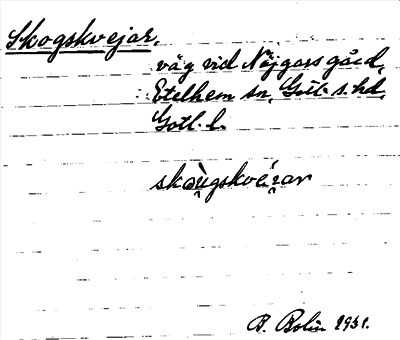 Skogskvejar,
väg vid Nöjgars gård,
Etelhem sn, Gotl. s. hd,
Gotl. l.
skoùgskvéi̯ar
B. Bolin 1931.